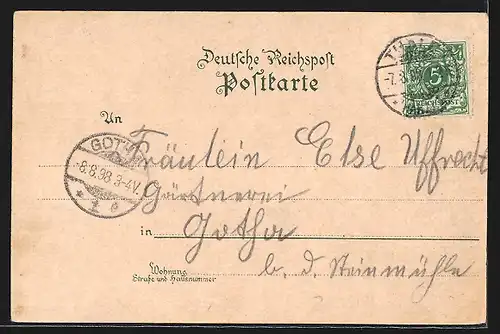 Deutsche Reichspost
Postkarte
7.8.98
5
REICHSPOST
An
Fräulein Else Uffrecht
GOTHA
8.8.98.3-4V.
* 1 d
Gärtnerei
in Gotha
b. d. Steinmühle
Wohnung
Straße und Hausnummer